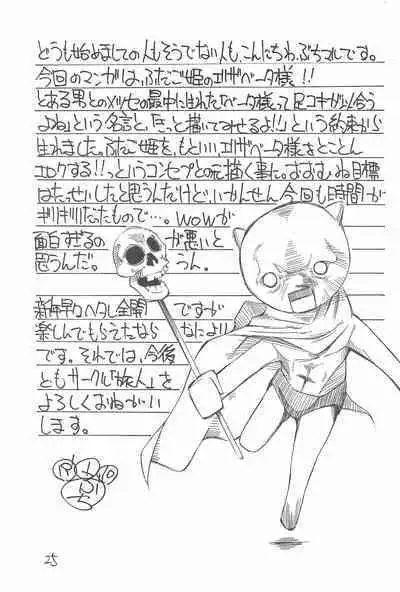 どうも始めましての人もそうでない人も、こんにちわ、ぶちマルです。
今回のマンガは、ふたご姫のエリザベータ様!!
とある男とのメッセの最中に生れた「ベータ様って足コキが似合う
よね」という名言と、「きっと描いてみせるよ!!」という約束から
生れました。ふたご姫を、もといエリザベータ様をとことん
エロクする!!っというコンセプトの元描く事た。おおむね目標
はたっせいしたと思うんだけど、いかんせん今回も時間が
ギリギリだったもので…。wowが
面白すぎるのが悪いと
思うんだ。うん。
新年早々ヘタレ全開ですが
楽しんでもらえたならなにより
です。それでは、今後
ともサークル「旅人」を
よろしくおねがい
します。
25